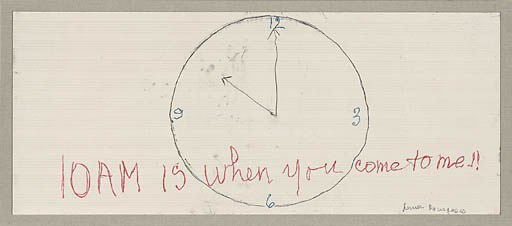 12
9 3
10AM IS when you come to me!!
6
Louise Bourgeois